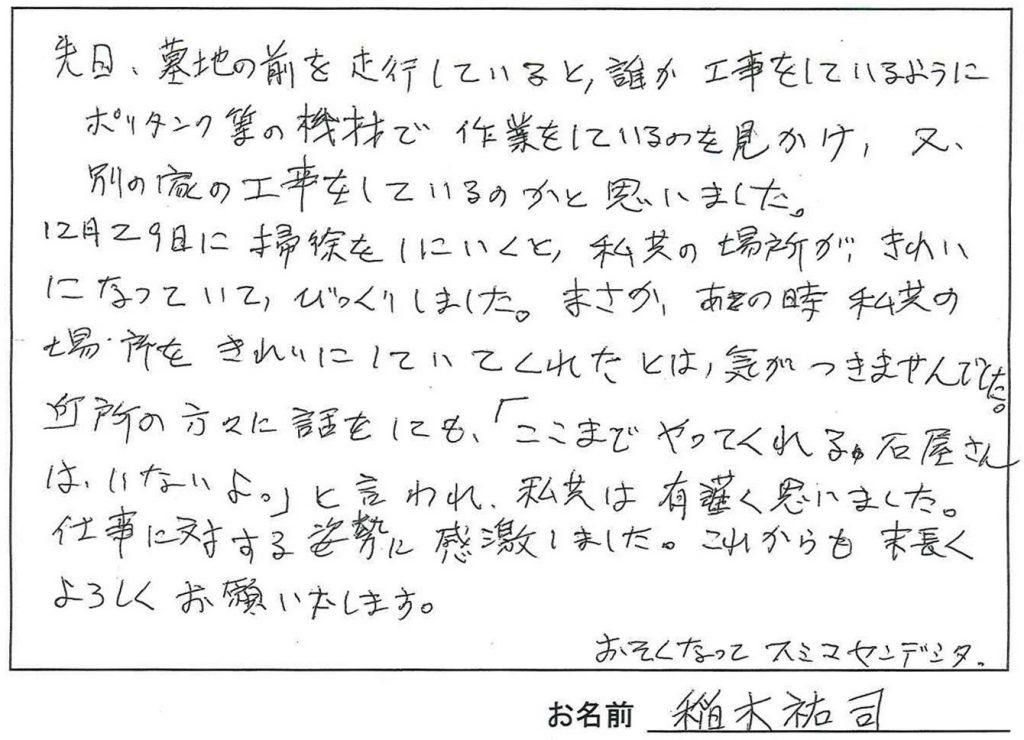 先日、墓地の前を走行していると、誰か工事をしているように
ポリタンク等の機材で作業をしているのを見かけ、又、
別の家の工事をしているのかと思いました。
12月29日に掃除をしにいくと、私共の場所が、きれい
になっていて、びっくりしました。まさか、あの時私共の
場所をきれいにしていてくれたとは、気がつきませんでした。
近所の方々に話をしても、「ここまでやってくれる石屋さん
は、いないよ。」と言われ、私共は有難く思いました。
仕事に対する姿勢に感激しました。これからも末長く
よろしくお願いいたします。
おそくなってスミマセンデシタ。
お名前 稲木祐司